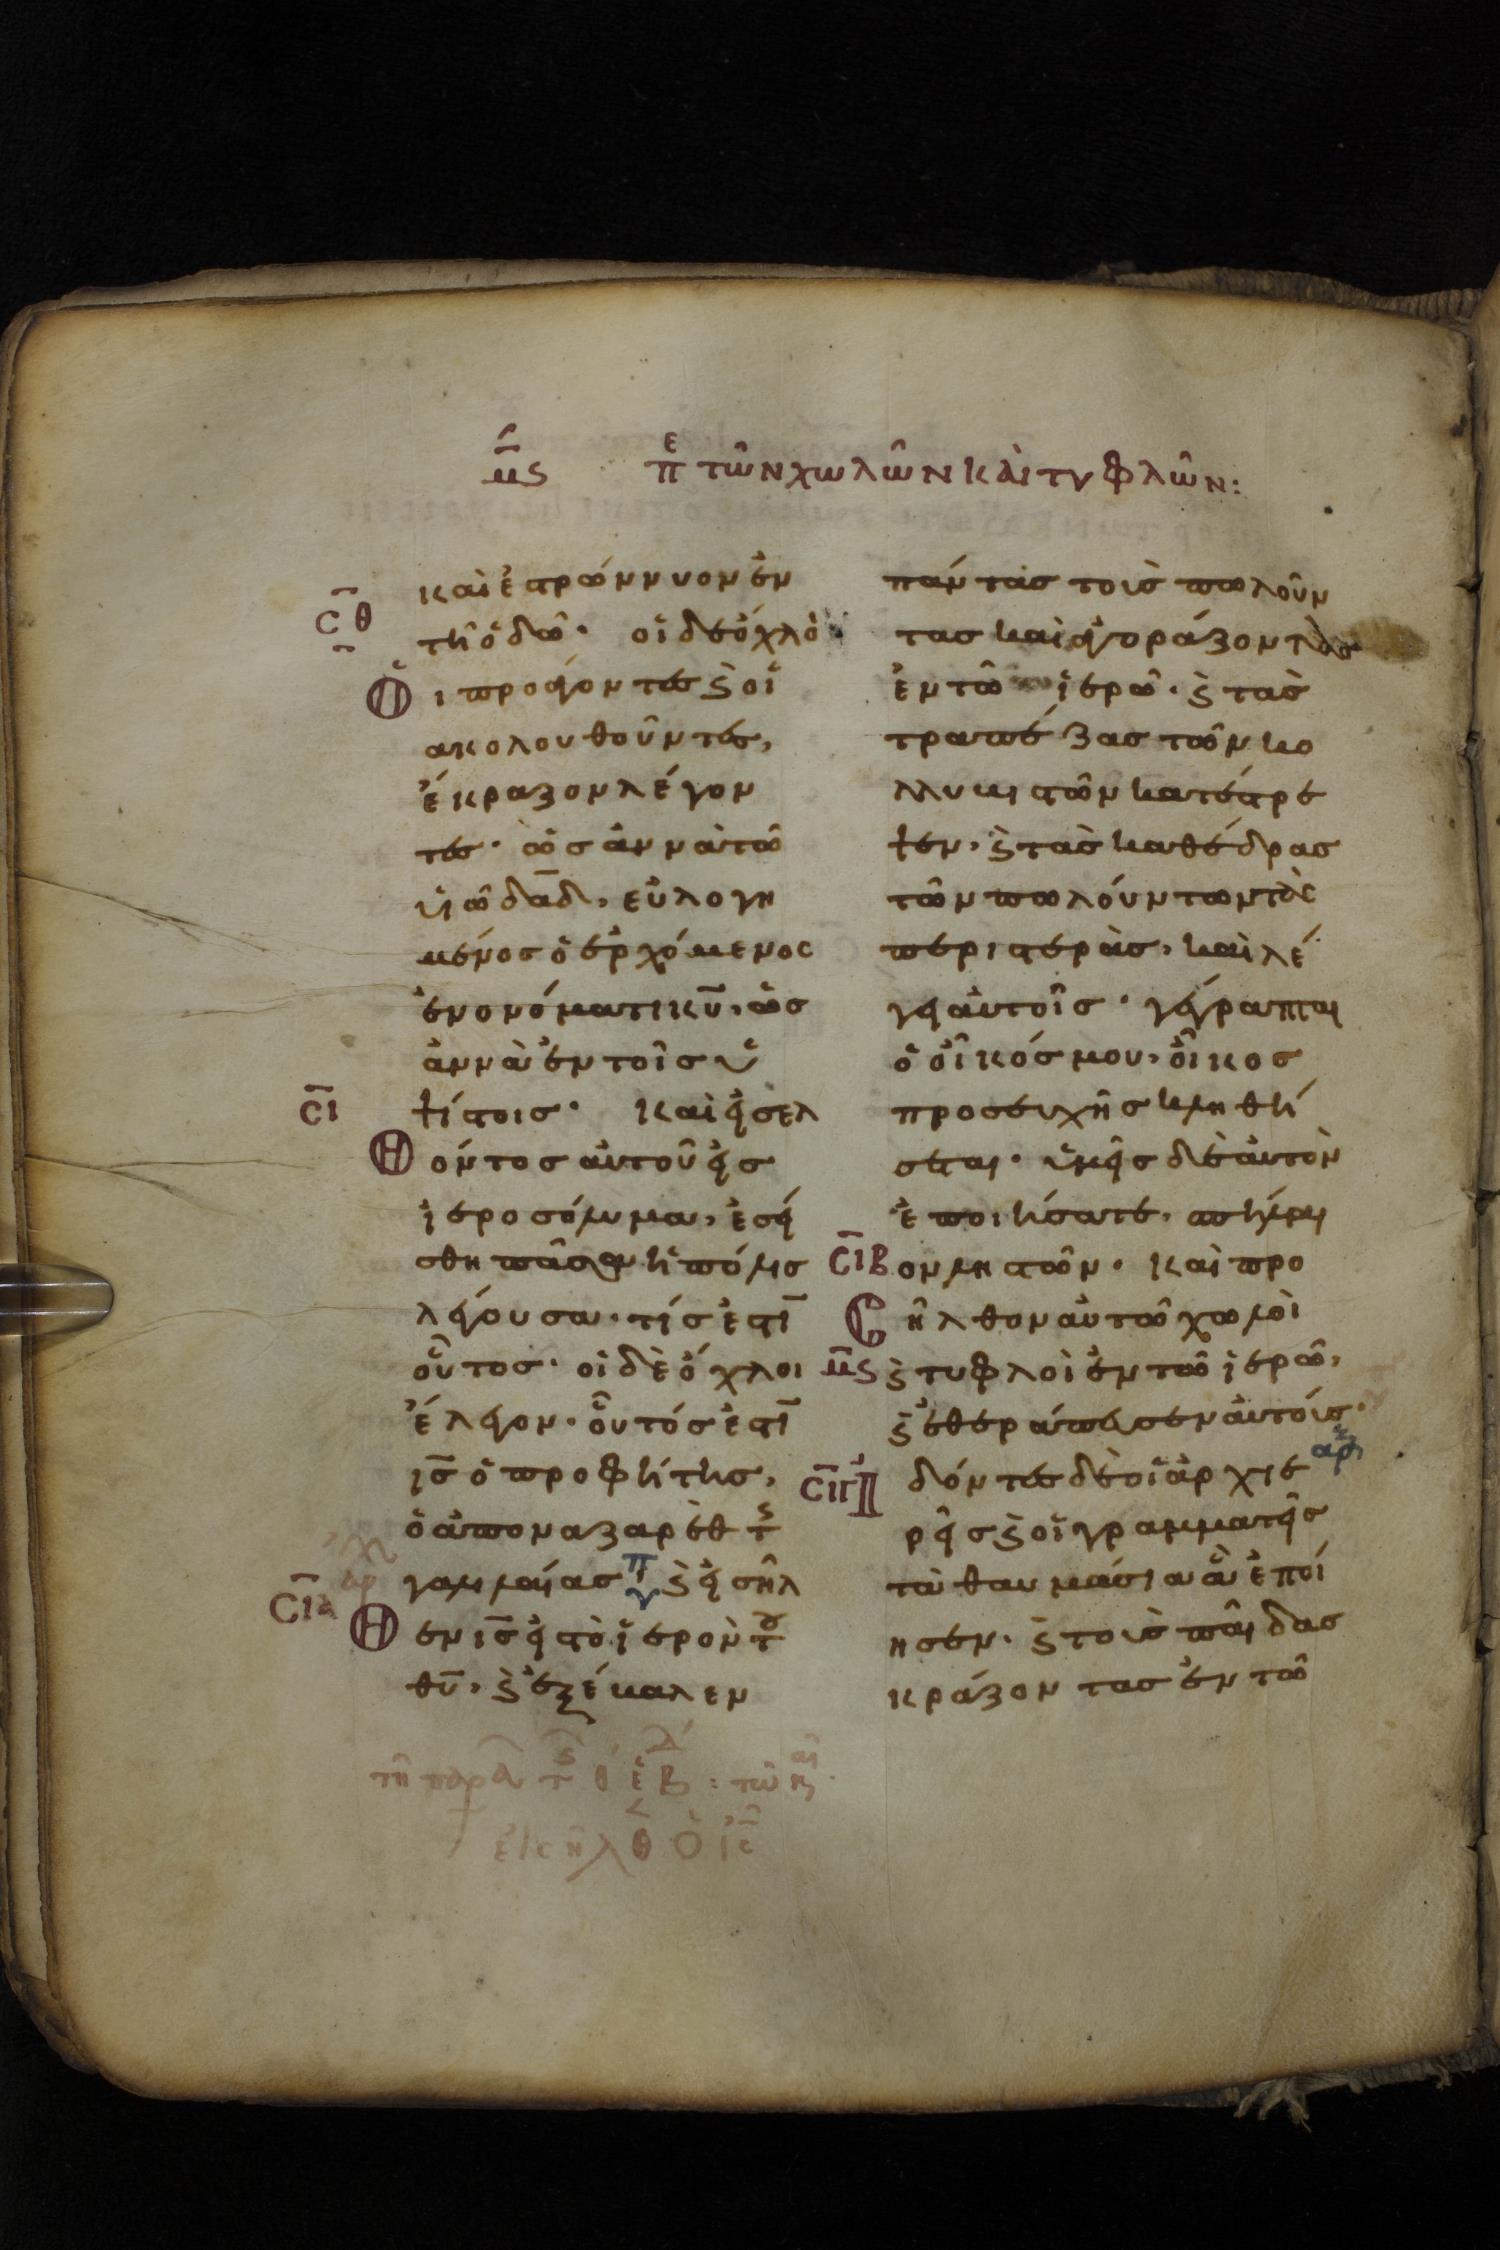 μ̅ς̅ πε τῶν χωλῶν καὶ τυφλῶν:
σ̅θ̅
καὶ ἐστρώννυον ἐν
τῆ ὁδῶ· οἱ δὲ ὄχλο
ι προάγοντες ϛ οἱ
ακολουθοῦντες,
ἔκραζον λέγον
τες· ὡσαννὰ τῶ
υἱῶ δα̅δ, εὐλογη
μένος ὁ ἐρχόμενος
ἐν ονόματι κυ̅, ὡσ
αννὰ ἐν τοῖς ὑ
σ̅ι̅
ψίστοις· Καὶ εἰσελ
θόντος αὐτοῦ εἰς
ἱεροσόλυμα, ἐσεί
σθη πᾶσα ἡ πόλις
λέγουσα· τίς ἐστι̅
οὗτος· οἱ δὲ ὄχλοι
ἔλεγον· οὗτός ἐστι̅
ις̅ ὁ προφήτης,
ὁ ἀπο ναζαρὲθ τς
γαλιλαίας ϛ εἰσῆλ
σ̅ι̅α̅
Θεν ις̅ εἰς τὸ ἱερὸν τ
θυ̅, ϛ ἐξέβαλεν
πάντας τοὺς πωλοῦν
τας καὶ ἀγοράζοντας
ἐν τῶ ἱερῶ· ϛ τὰς
τραπέζας τῶν κο
λλυβιστῶν κατέστρε
ψεν, ϛ τὰς καθέδρας
τῶν πωλούντων τὰς
περιστεράς, καὶ λέ
γει αὐτοῖς· γέγραπται
ὁ οἶκός μου, οἶκος
προσευχῆς κληθή
σεται· ὑμεῖς δὲ αὐτὸν
ἐποιήσατε, σπήλαι
σ̅ι̅β̅
ον ληστῶν· Καὶ προ
σῆλθον αὐτῶ χωλοὶ
μ̅ς̅
ϛ τυφλοὶ ἐν τῶ ἱερῶ,
ϛ ἐθεράπευσεν αὐτούς·
σ̅ι̅γ̅
Ἰδόντες δὲ οἱ ἀρχιε
ρεῖς ϛ οἱ γραμματεῖς
τὰ θαυμάσια ἃ ἐποί
ησεν· ϛ τοὺς παῖδας
κράζοντας ἐν τῶ
εἰσηλθ ὁ ις̅